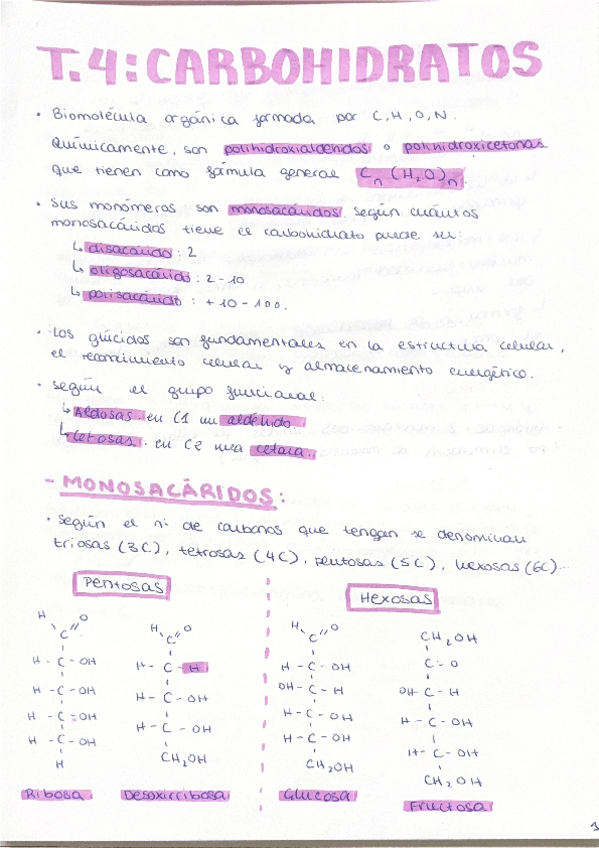 T.4: CARBOHIDRATOS
· Biomolécula orgánica formada por C, H, O, N.
Químicamente, son polihidroxialdehídos o polihidroxicetonas
que tienen como fórmula general Cn (H2O)n.
· Sus monómeros son monosacáridos. Según cuántos
monosacáridos tiene el carbohidrato puede ser:
↳ disacárido: 2
↳ oligosacárido: 2-10
↳ polisacárido: +10-100.
· Los glúcidos son fundamentales en la estructura celular,
el reconocimiento celular y almacenamiento energético.
· Según el grupo funcional:
↳ Aldosas en C1 un aldehído.
↳ Cetosas. en C2 una cetona.
- MONOSACÁRIDOS:
· Según el nº de carbonos que tengan se denominan
triosas (3C), tetrosas (4C), pentosas (5C), hexosas (6C)...
Pentosas
H O
C
H - C - OH
H - C - OH
H - C - OH
H - C - OH
H
Ribosa
H O
C
H - C - H
H - C - OH
H - C - OH
CH2OH
Desoxirribosa
Hexosas
H O
C
H - C - OH
OH - C - H
H - C - OH
H - C - OH
CH2OH
Glucosa
CH2OH
C = O
OH - C - H
H - C - OH
H - C - OH
CH2OH
Fructosa
1